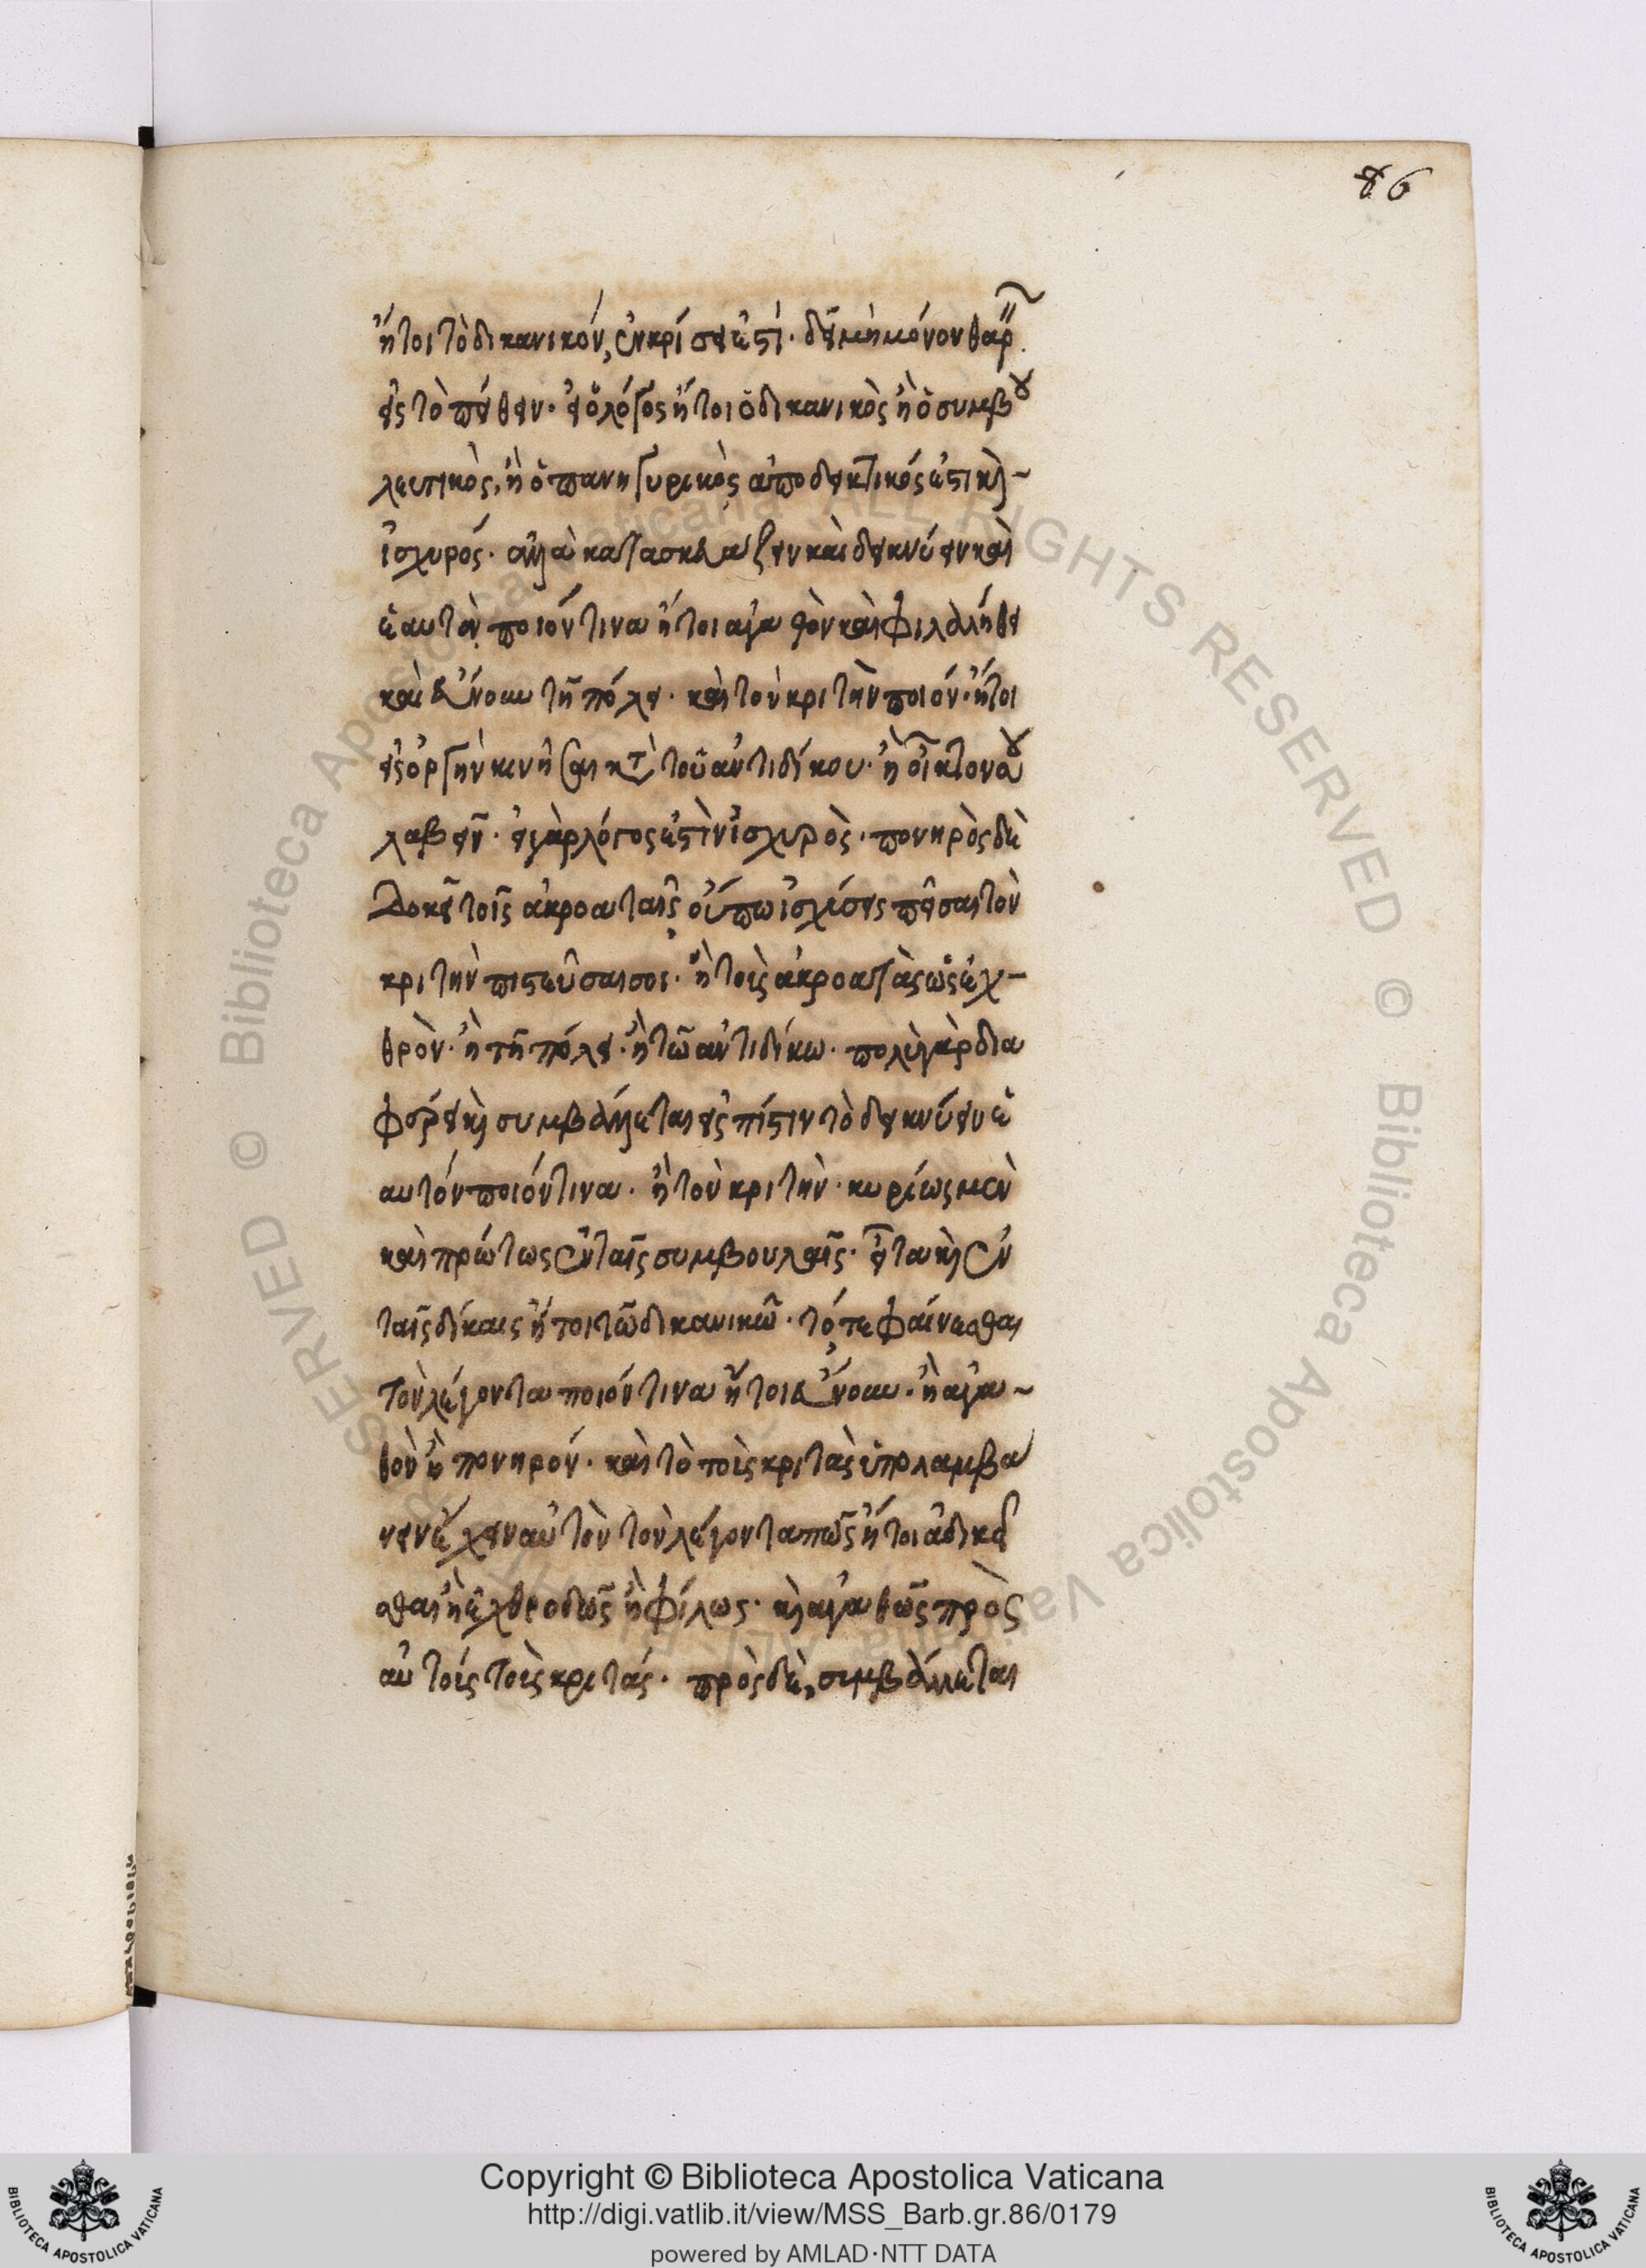 86
ἤτοι τὸ δικανικόν, ἐν κρίσει ἐστί· δεῖ μὴ μόνον θαρρ
εἰς τὸ πείθειν· εἰ ὁ λόγος ἤτοι ὁ δικανικὸς ἢ ὁ συμβου
λευτικὸς, ἢ ὁ πανηγυρικὸς ἀποδεικτικός ἐστι καὶ
ἰσχυρός· ἀλλὰ κατασκευάζειν καὶ δεικνύειν καὶ
ἑαυτὸν ποιόν τινα ἤτοι ἀγαθὸν καὶ φιλαλήθη
καὶ εὔνουν τῇ πόλει· καὶ τὸν κριτὴν ποιόν· ἤτοι
εἰς ὀργὴν κινῆσαι κατὰ τοῦ ἀντιδίκου· ἢ οἶκτον
λαβεῖν· εἰ γὰρ λόγος ἐστὶν ἰσχυρὸς· πονηρὸς δὲ
δοκεῖ τοῖς ἀκροαταῖς οὔπω ἰσχύσεις πεῖσαι τὸν
κριτὴν πιστεῦσαι σοι· ἢ τοὺς ἀκροατὰς ὡς ἐχ-
θρὸν· ἢ τῇ πόλει· ἢ τῷ ἀντιδίκῳ· πολὺ γὰρ δια
φέρει καὶ συμβάλλεται εἰς πίστιν τὸ δεικνύειν ἑ
αυτόν ποιόν τινα· ἢ τὸν κριτὴν· κυρίως μὲν
καὶ πρώτως ἐν ταῖς συμβουλαῖς· εἶτα καὶ ἐν
ταῖς δίκαις ἤτοι τῷ δικανικῷ· τό τε φαίνεσθαι
τὸν λέγοντα ποιόν τινα ἤτοι εὔνουν· ἢ ἀγα-
θὸν ἢ πονηρόν· καὶ τὸ τοὺς κριτὰς ὑπολαμβά
νειν ἔχειν αὐτὸν τὸν λέγοντα πῶς ἤτοι ἀδικεῖ
σθαι ἢ ἐχθρωδῶς ἢ φίλως· καὶ ἀγαθῶς πρὸς
αὐτοὺς τοὺς κριτάς· πρὸς δὲ, συμβάλλεται
Copyright © Biblioteca Apostolica Vaticana
http://digi.vatlib.it/view/MSS_Barb.gr.86/0179
powered by AMLAD·NTT DATA